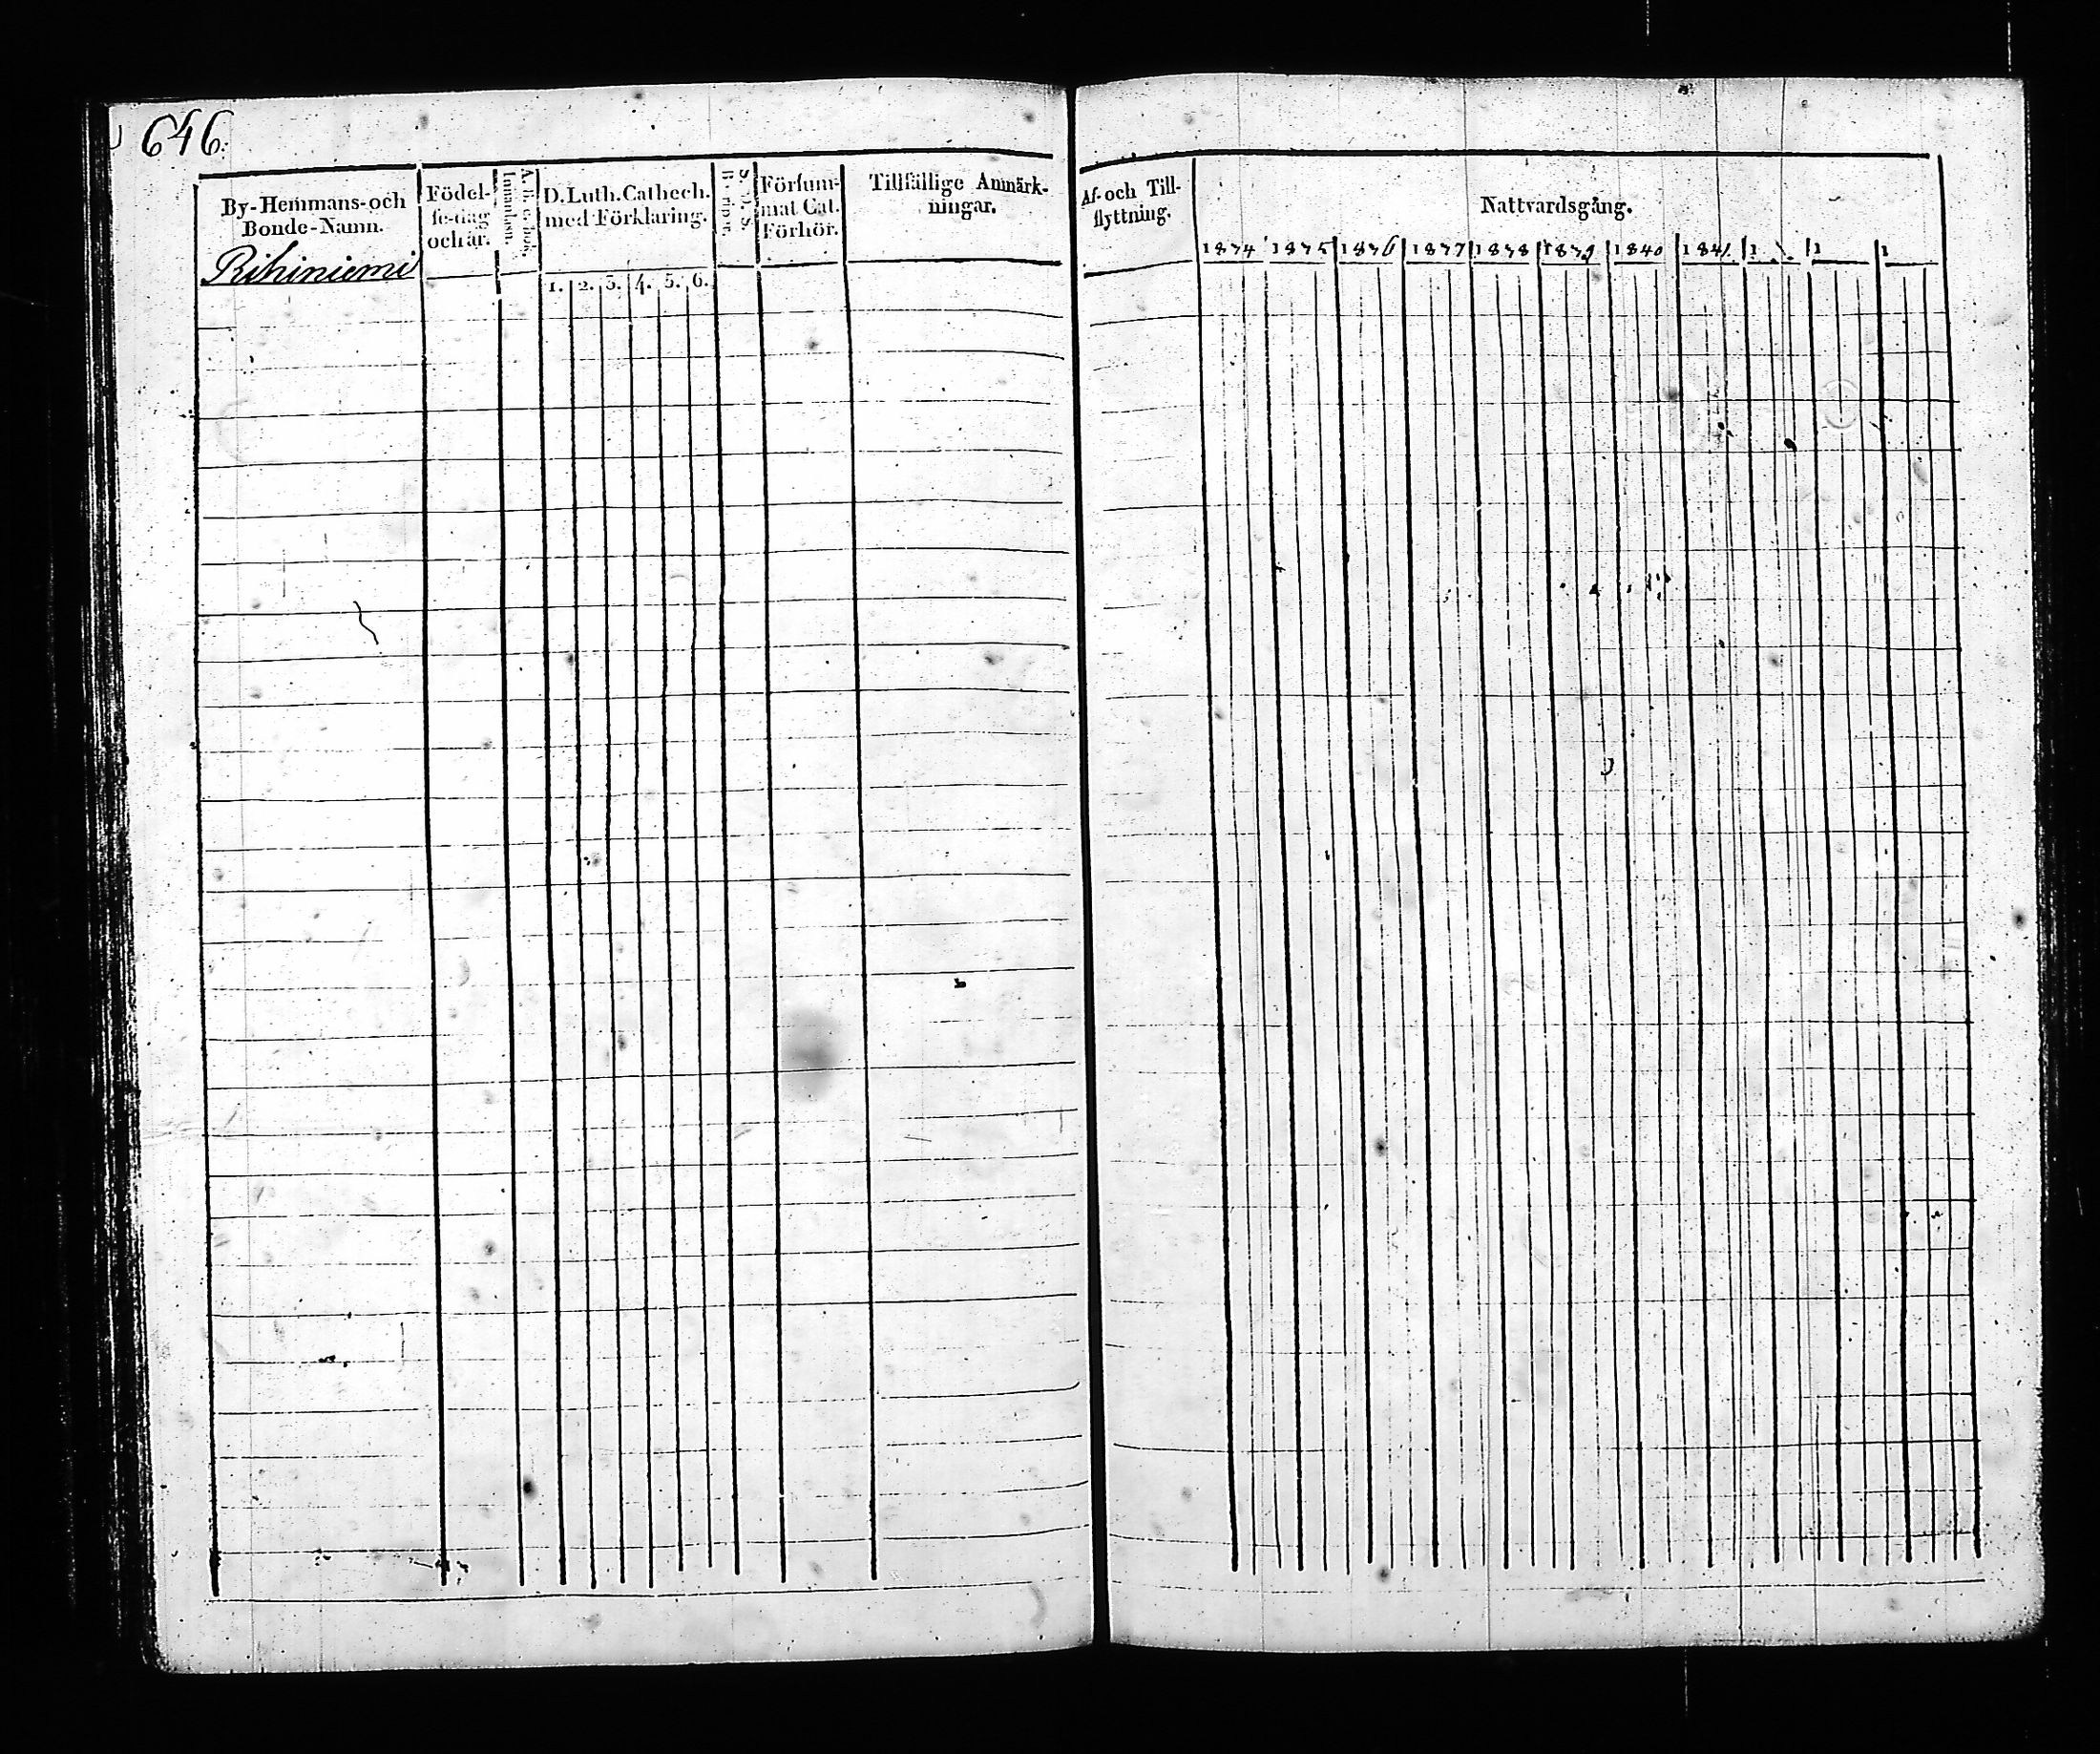 646.
By-Hemmans-och
Bonde-Namn.
Rihiniemi
Födel-
se-dag
och år.
Innanläsn.
D. Luth. Cathech.
med Förklaring.
1. 2. 3. 4. 5. 6.
Försum-
mat Cat.
Förhör.
Tillfällige Anmärk-
ningar.
Af- och Till-
flyttning.
Nattvardsgång.
1834 1835 1836 1837 1838 1839 1840 1841 1 1 1